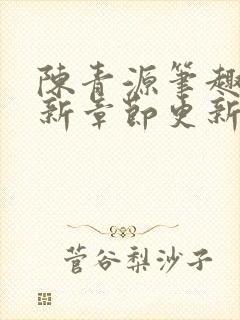 陳青源筆趣
新章節更新
菅谷梨沙子